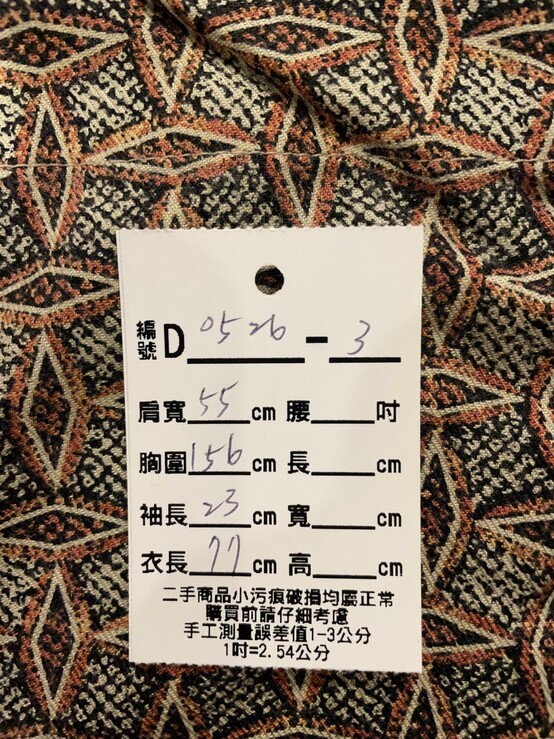 編號D 0526-3
肩寬 55 cm 腰____吋
胸圍 156 cm 長____cm
袖長 23 cm 寬____cm
衣長 77 cm 高____cm
二手商品小污痕破損均屬正常
購買前請仔細考慮
手工測量誤差值1-3公分
1吋=2.54公分